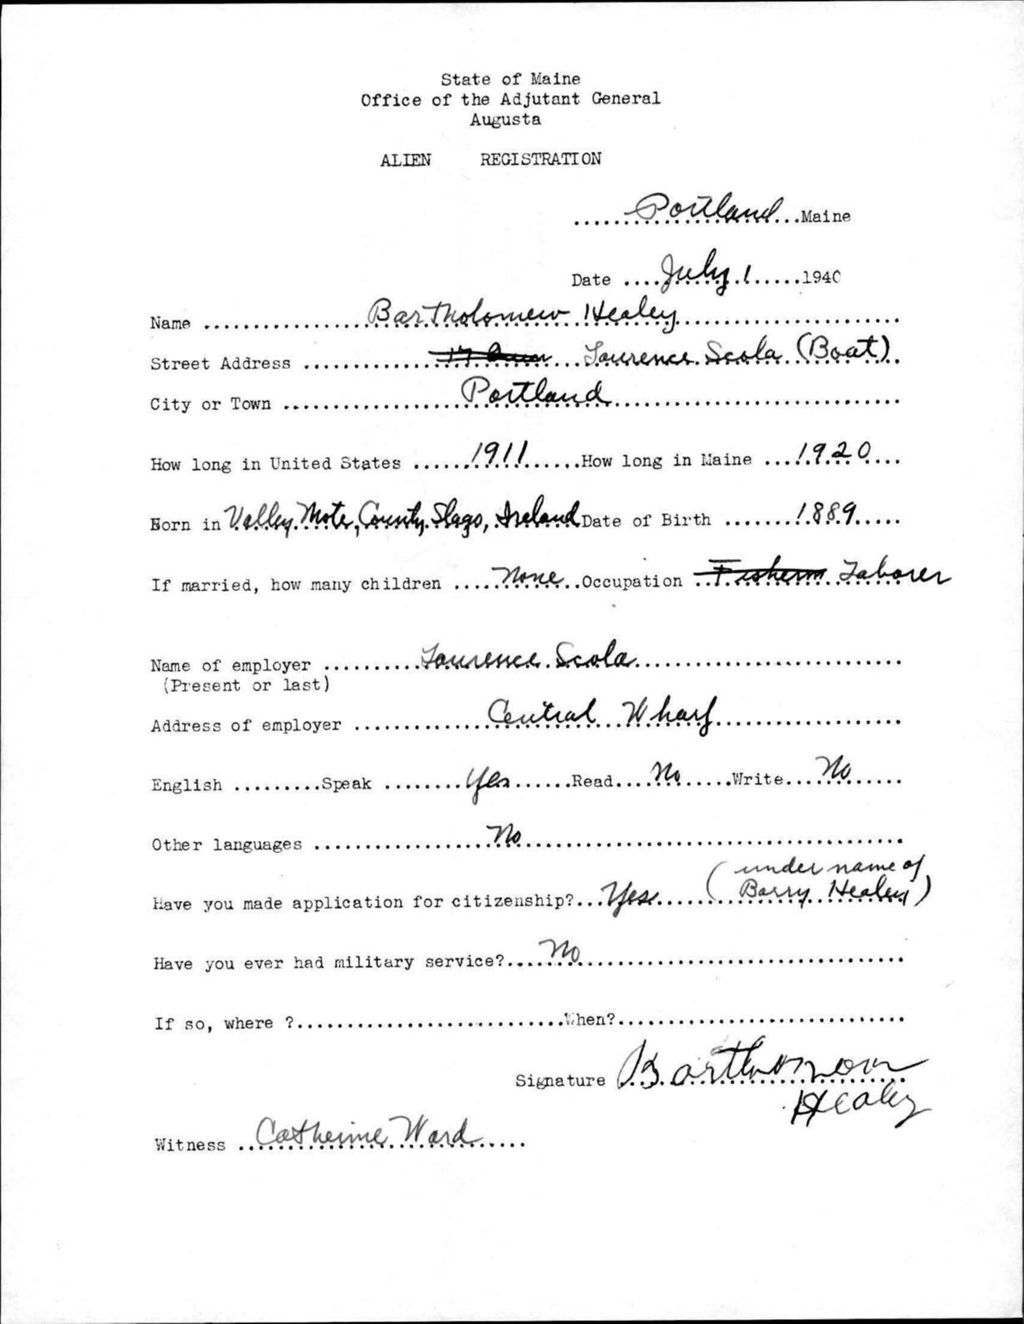 State of Maine
Office of the Adjutant General
Augusta
ALIEN REGISTRATION
Portland Maine
Date July 1 1940
Name Bartholomew Healey
Street Address Laurence Scola (Boat)
City or Town Portland
How long in United States 1911 How long in Maine 1920
Born in Valley Mote, County Slago, Ireland Date of Birth 1889
If married, how many children None Occupation Fisherm Laborer
Name of employer Laurence Scola
(Present or last)
Address of employer Central Wharf
English Speak Yes Read No Write No
Other languages No
(under name of
Have you made application for citizenship? Yes Barry Healey)
Have you ever had military service? No
If so, where ? When?
Signature Bartholomew
Healey
Witness Catherine Ward